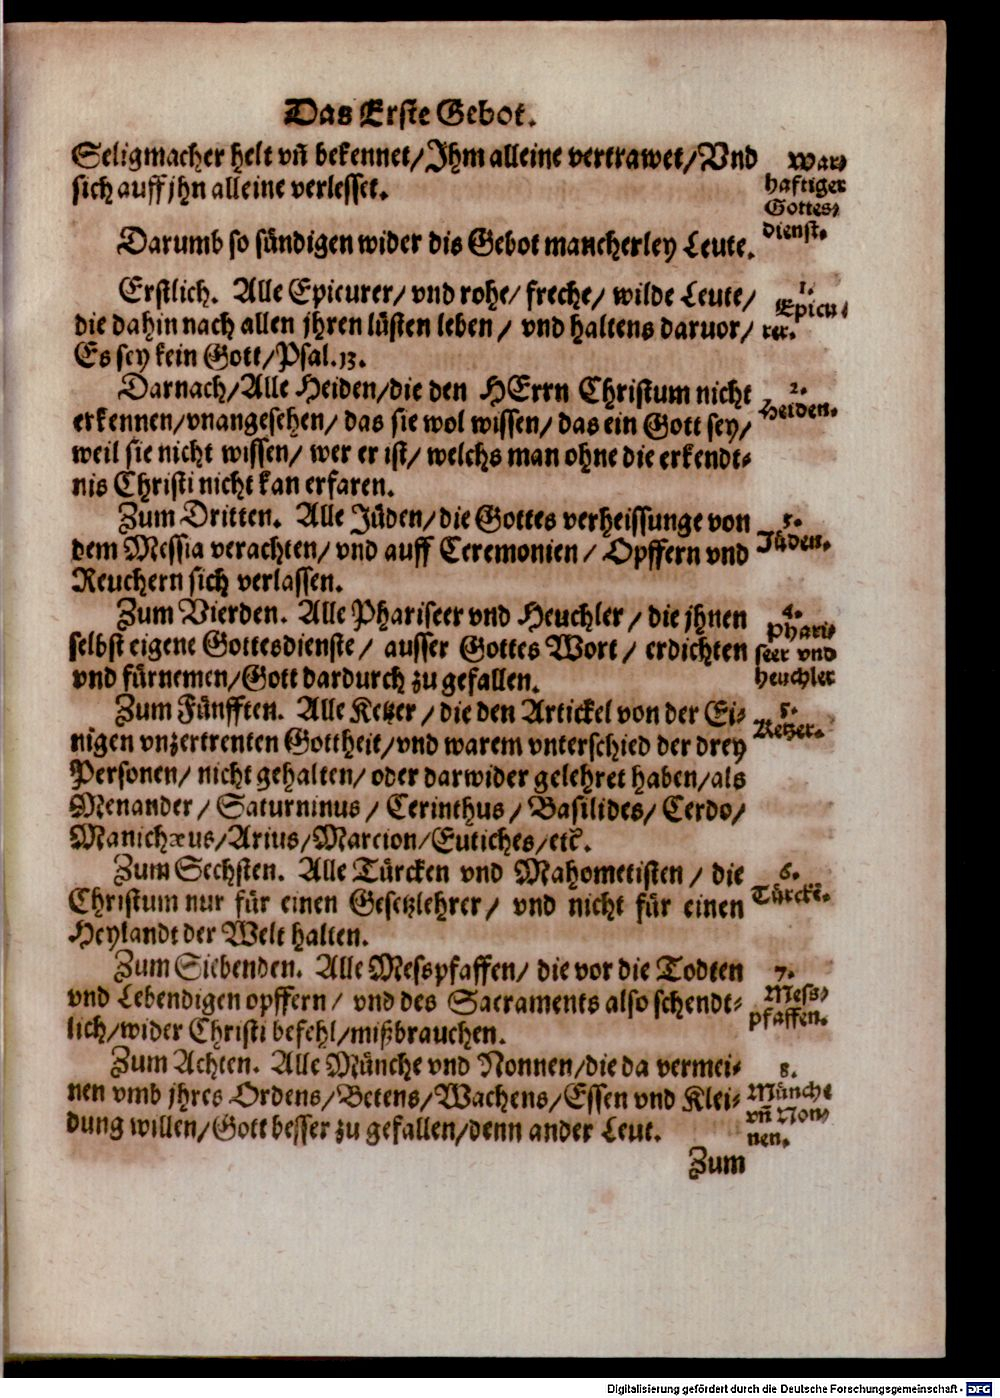 Das Erste Gebot.
Seligmacher helt vñ bekennet/Ihm alleine vertrawet/Vnd
sich auff jhn alleine verlesset.
War⸗
haftiger
Gottes⸗
dienst.
Darumb so sündigen wider dis Gebot mancherley Leute.
Erstlich. Alle Epicurer/ vnd rohe/ freche/ wilde Leute/
die dahin nach allen jhren lüsten leben/ vnd haltens daruor/
Es sey kein Gott/Psal.13.
1.
Epicu⸗
rer.
Darnach/Alle Heiden/die den HErrn Christum nicht
erkennen/vnangesehen/ das sie wol wissen/ das ein Gott sey/
weil sie nicht wissen/ wer er ist/ welchs man ohne die erkendt⸗
nis Christi nicht kan erfaren.
2.
Heiden.
Zum Dritten. Alle Jüden/die Gottes verheissunge von
dem Messia verachten/ vnd auff Ceremonien/ Opffern vnd
Reuchern sich verlassen.
3.
Jüden.
Zum Vierden. Alle Phariseer vnd Heuchler/ die jhnen
selbst eigene Gottesdienste/ ausser Gottes Wort/ erdichten
vnd fürnemen/Gott dardurch zu gefallen.
4.
Phari⸗
seer vnd
heuchler
Zum Fünfften. Alle Ketzer/ die den Artickel von der Ei⸗
nigen vnzertrenten Gottheit/vnd warem vnterschied der drey
Personen/ nicht gehalten/ oder darwider gelehret haben/als
Menander/ Saturninus/ Cerinthus/ Basilides/ Cerdo/
Manichæus/Arius/Marcion/Eutiches/etc.
5.
Ketzer.
Zum Sechsten. Alle Türcken vnd Mahometisten/ die
Christum nur für einen Gesetzlehrer/ vnd nicht für einen
Heylandt der Welt halten.
6.
Türckē.
Zum Siebenden. Alle Messpfaffen/ die vor die Todten
vnd Lebendigen opffern/ vnd des Sacraments also schendt⸗
lich/wider Christi befehl/mißbrauchen.
7.
Mess⸗
pfaffen.
Zum Achten. Alle Münche vnd Nonnen/die da vermei⸗
nen vmb jhres Ordens/Betens/Wachens/Essen vnd Klei⸗
dung willen/Gott besser zu gefallen/denn ander Leut.
8.
Münche
vñ Non⸗
nen.
Zum
Digitalisierung gefördert durch die Deutsche Forschungsgemeinschaft - DFG